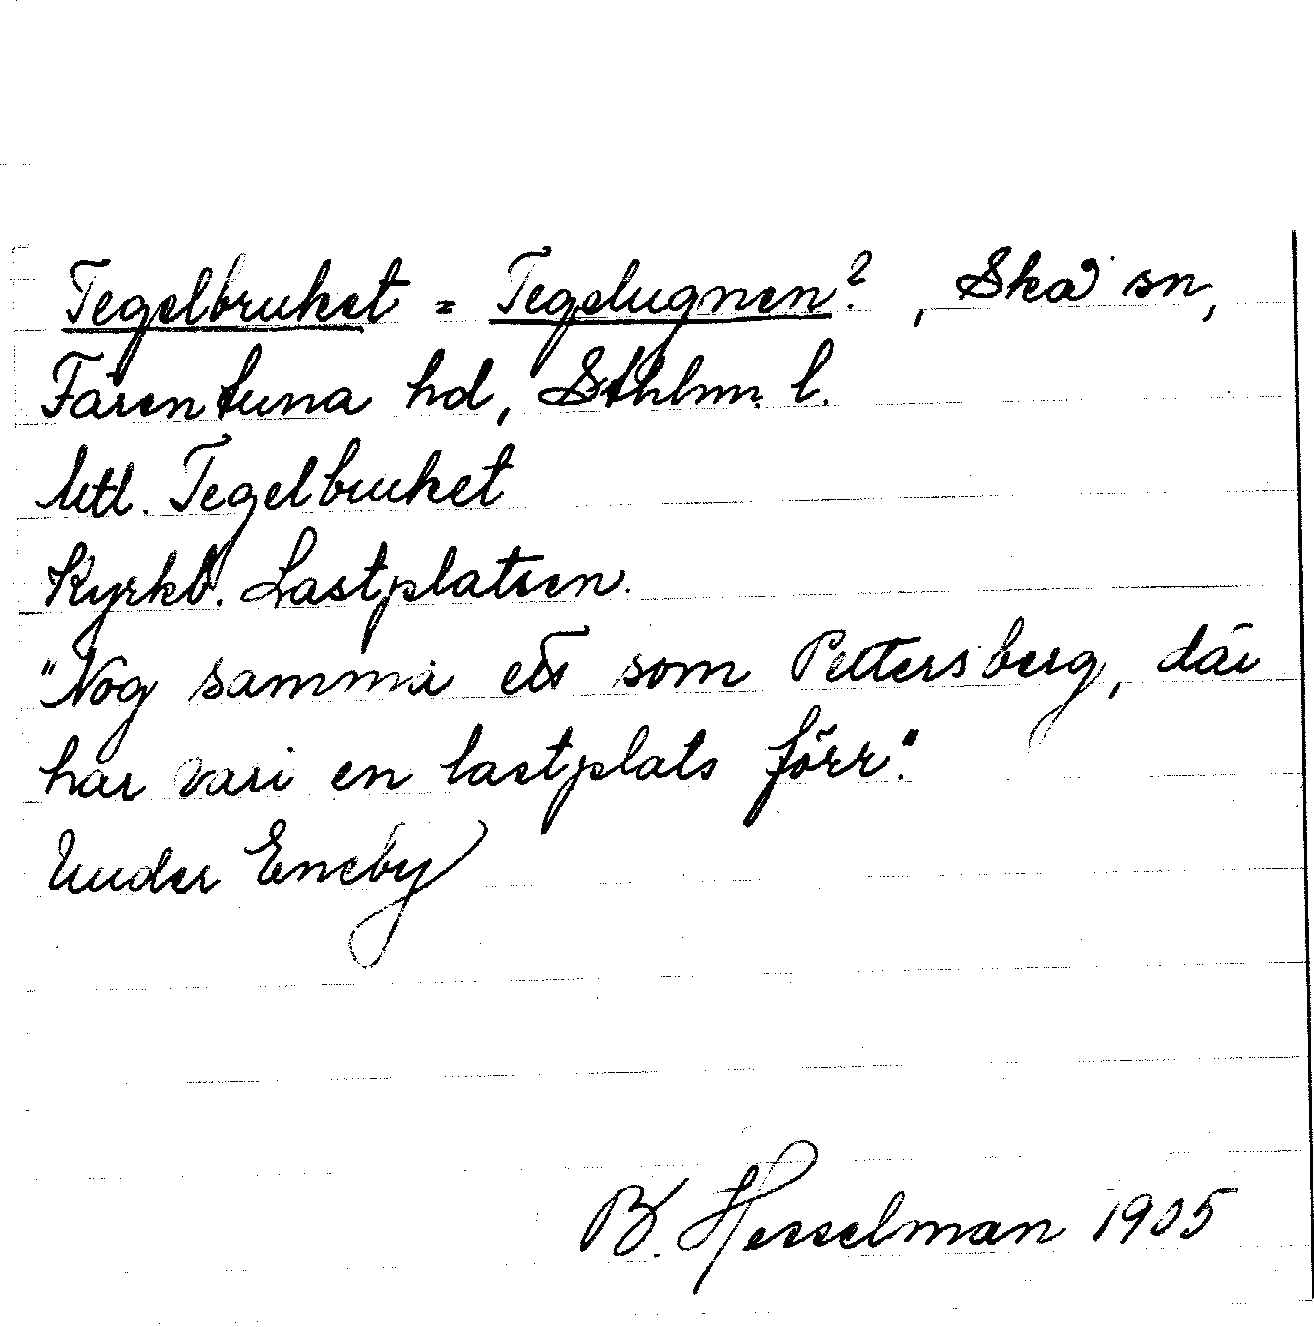 Tegelbruket = Tegelugnen?, Skå sn,
Färentuna hd, Sthlm. l.
Mtl. Tegelbruket
Kyrkb. Lastplatsen.
"Nog samma ett som Pettersberg, där
har vari en lastplats förr."
Under Eneby
B. Hesselman 1905